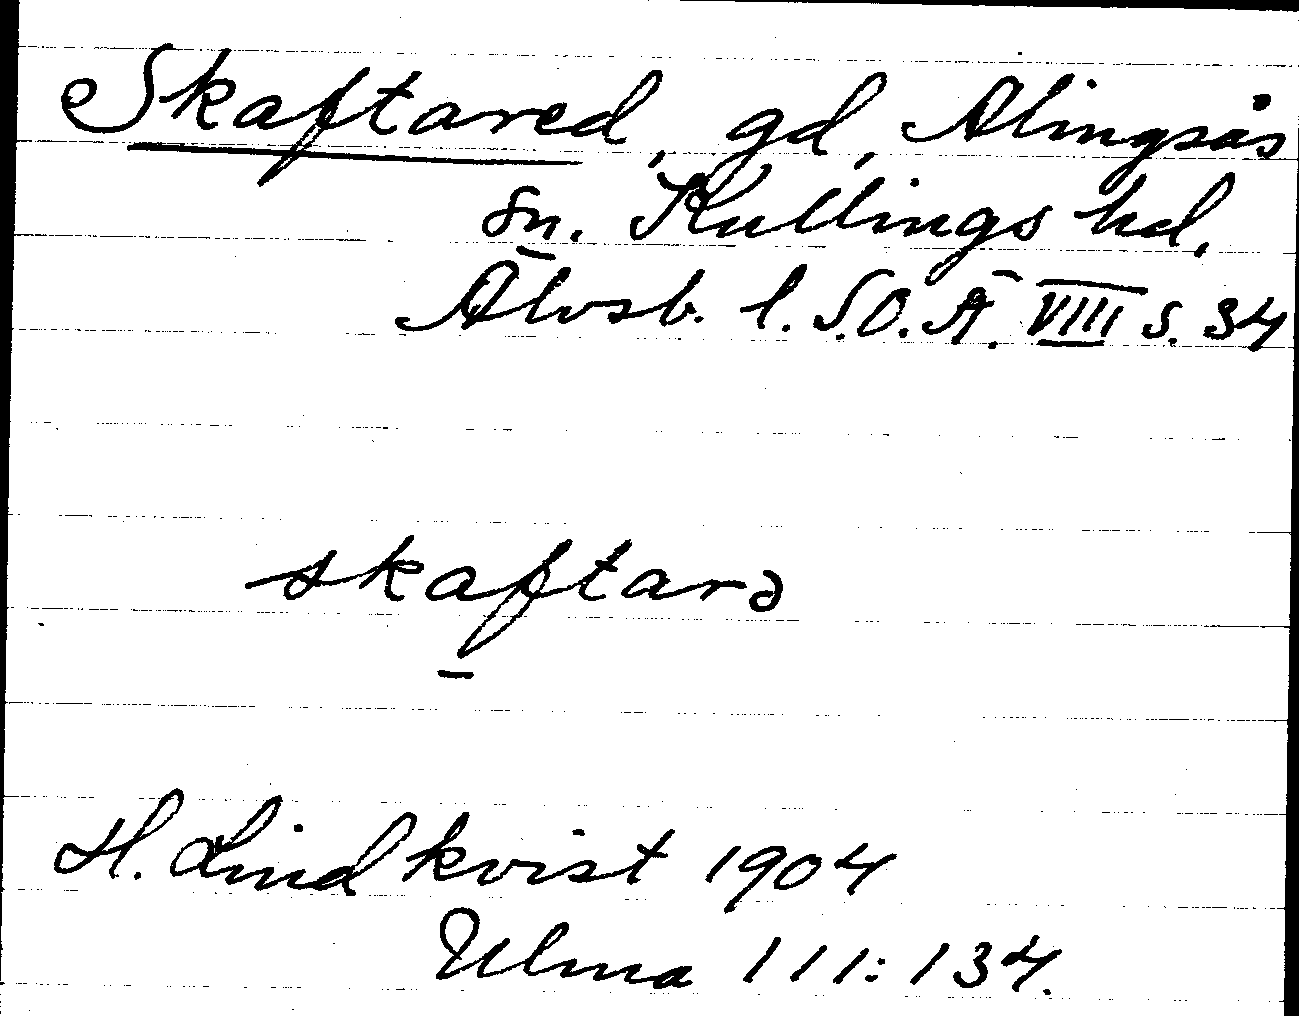 Skaftared, gd, Alingsås
sn. Kullings hd.
Älvsb. l. S.O.Ä. VIII s. 34
skaftarə
H. Lindkvist 1904
Ulma 111:134.